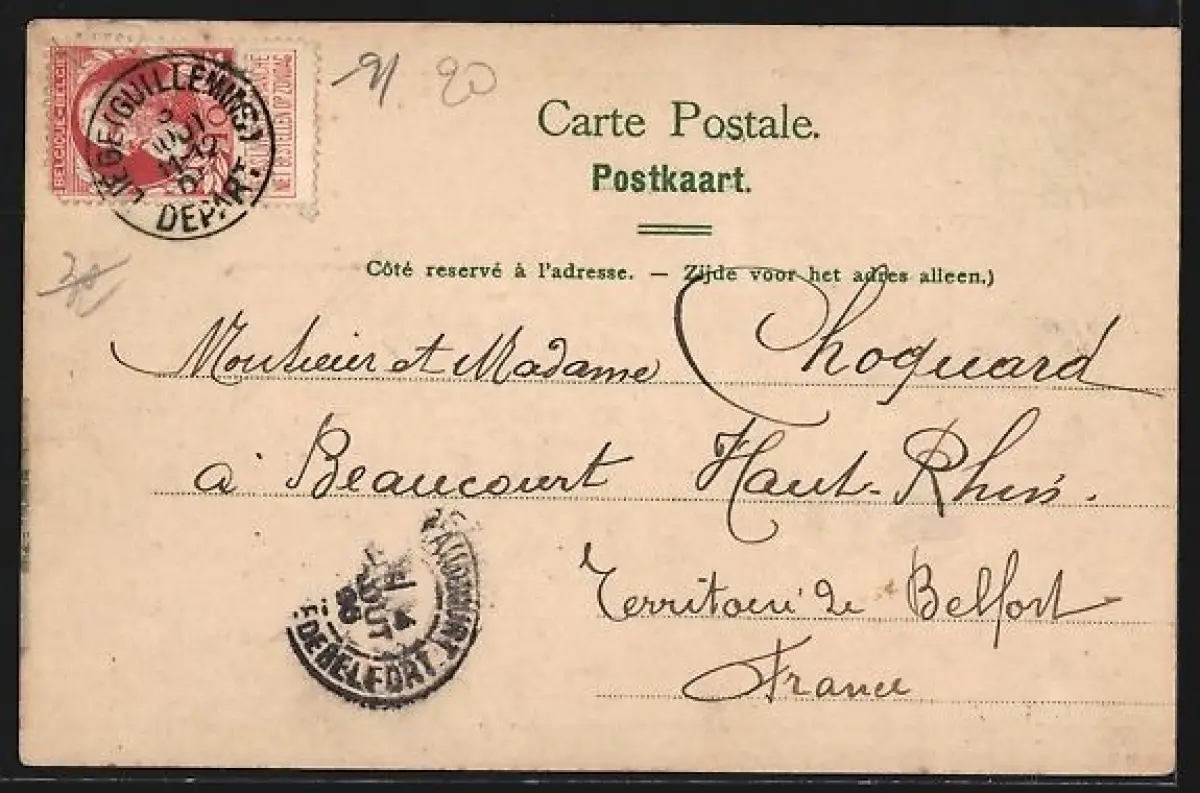 BELGIQUE-BELGIË
NET BESTELLEN OP ZONDAG
10
LIÉGE (GUILLEMINS)
DEPART
91 20
Carte Postale.
Postkaart.
Côté reservé à l'adresse. — Zijde voor het adres alleen.)
Monsieur et Madame Choquard
à Beaucourt Haut-Rhin.
Territoire de Belfort
France
BEAUCOURT
DE BELFORT